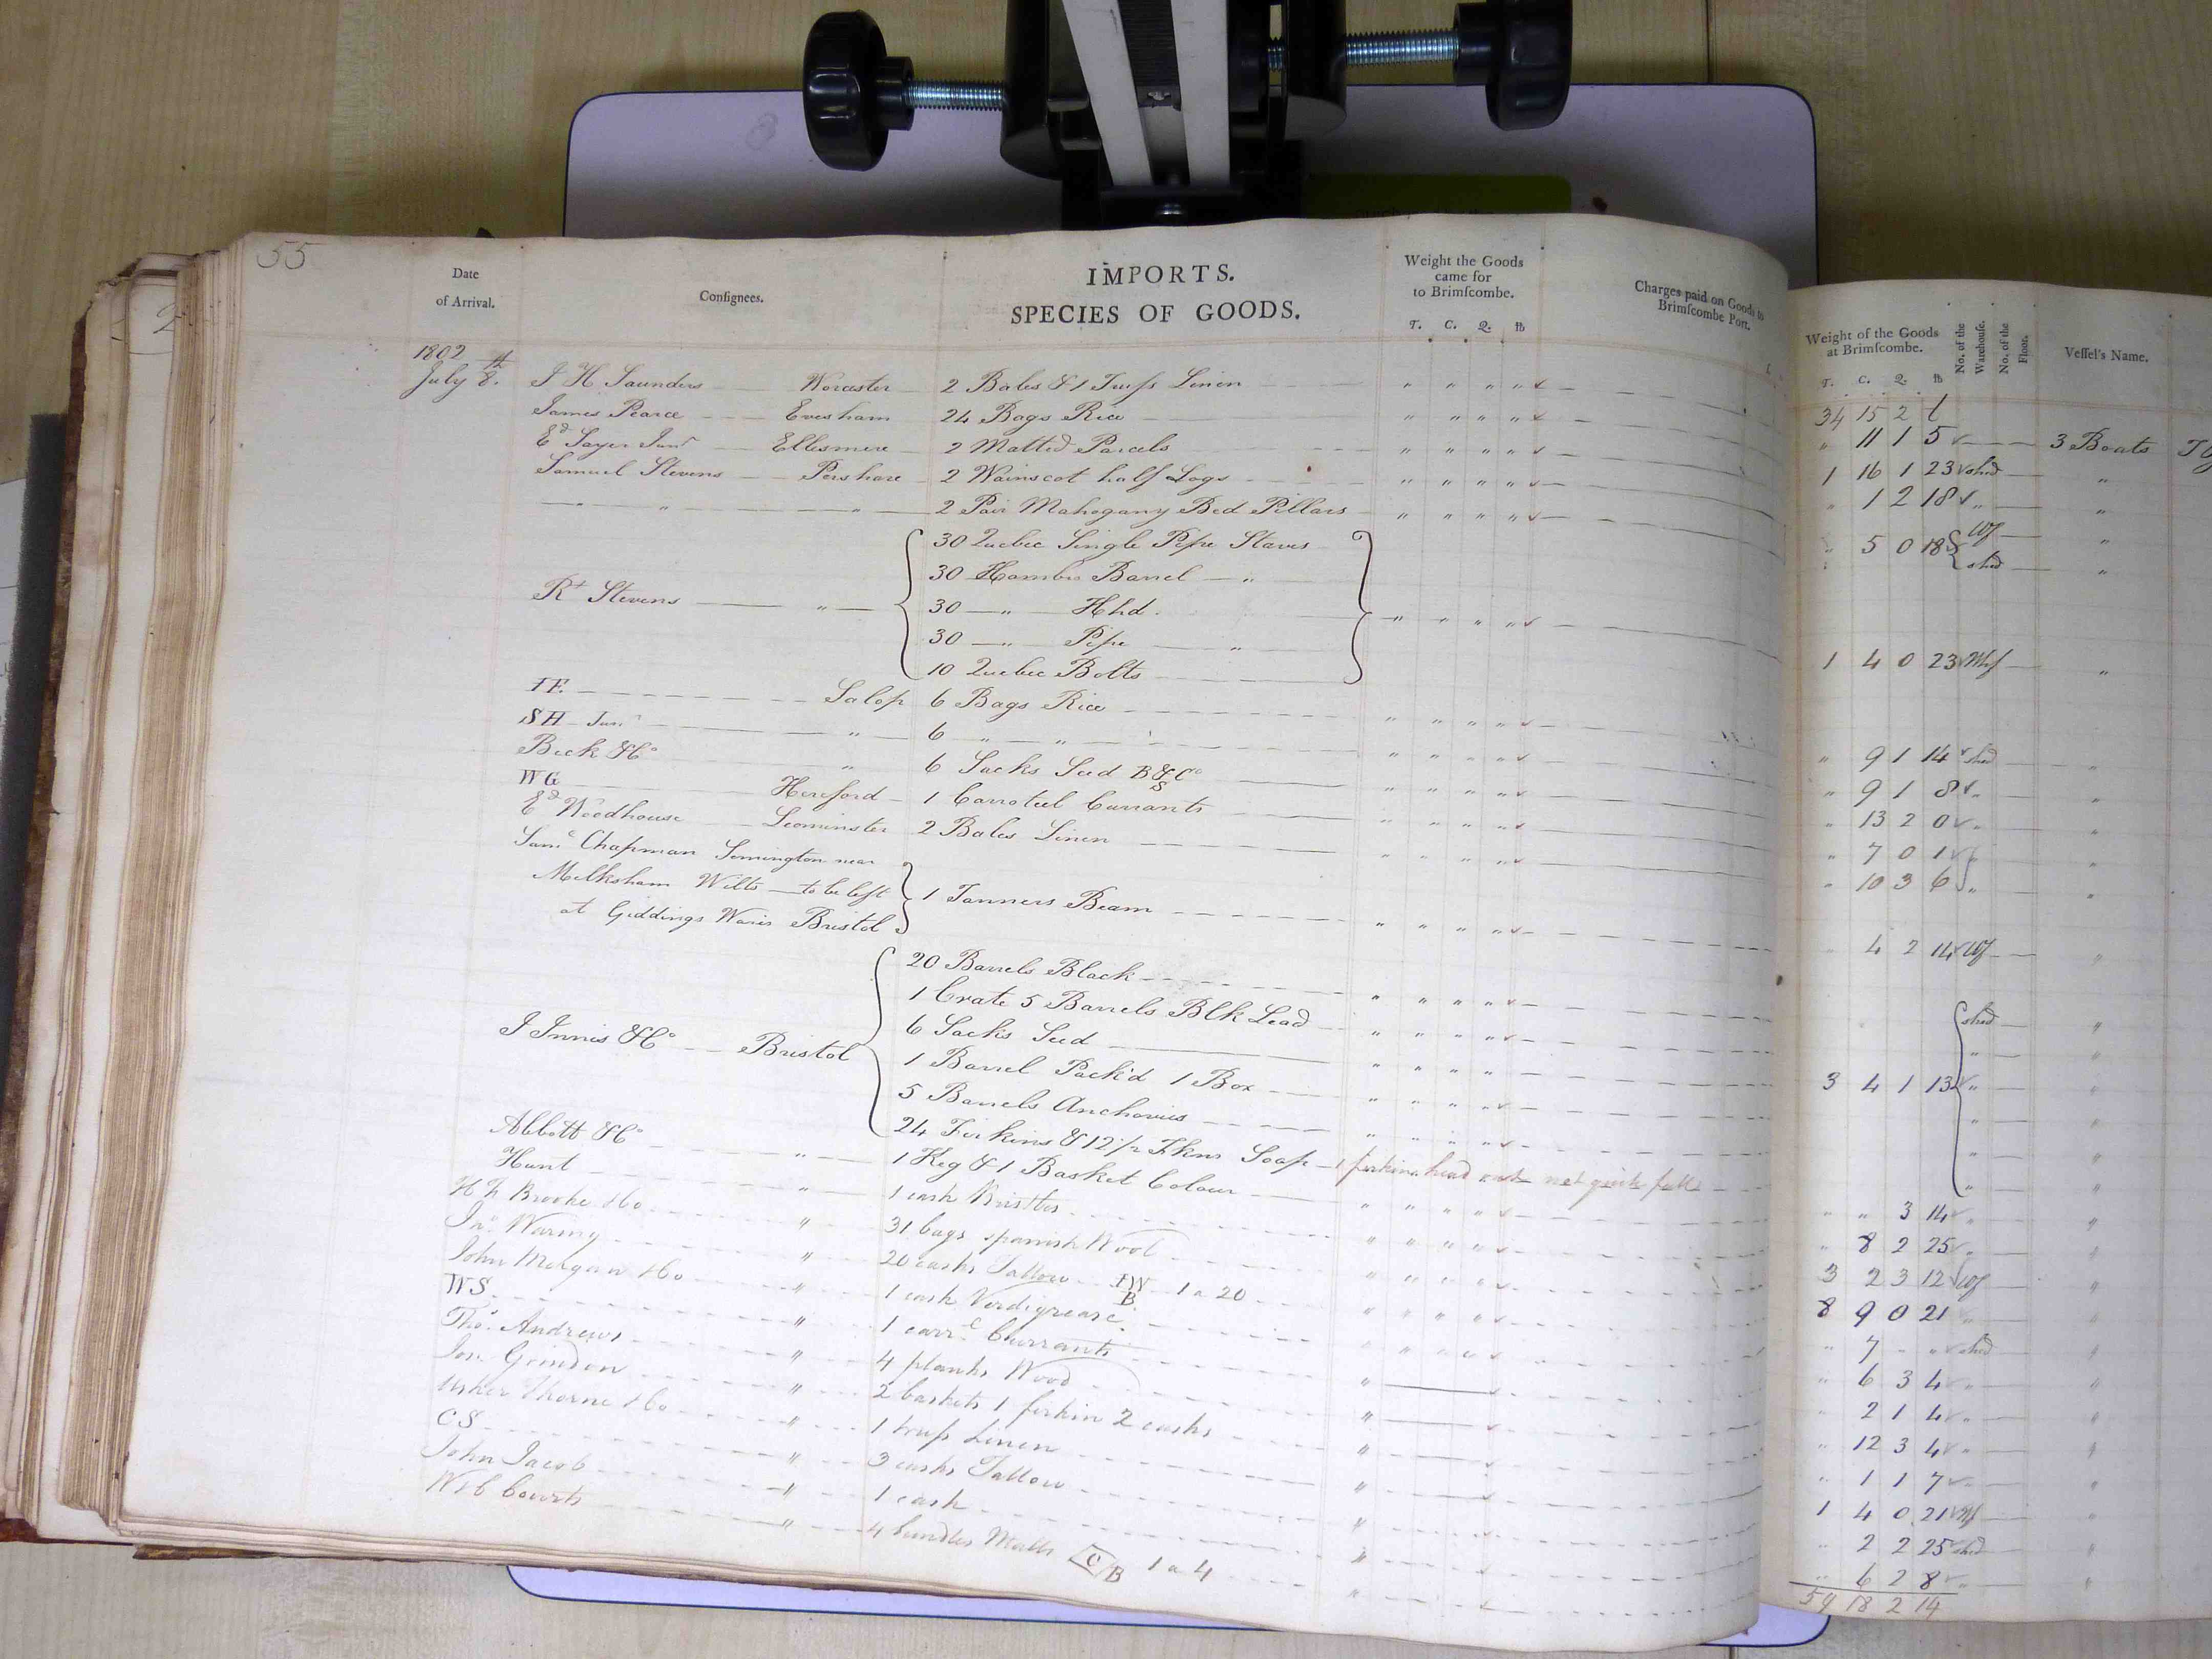 55
Date of Arrival.
Consignees.
IMPORTS.
SPECIES OF GOODS.
Weight the Goods came for to Brimscombe.
T. C. Q. lb
Charges paid on Goods to Brimscombe Port.
Weight of the Goods at Brimscombe.
T. C. Q. lb
No. of the Warehouse.
No. of the Floor.
Vessel's Name.
34 15 2
1802 July 8th. J H Saunders Worcester 2 Bales & 1 Truss Linen " " " " " 11 1 5 3 Boats
James Pearce Evesham 24 Bags Rice " " " " 1 16 1 23 shed "
Ed Sayer Junr Ellesmere 2 Matted Parcels " " " " " 1 2 18 " "
Samuel Stevens Pershore 2 Wainscot half Logs " " " " " 5 0 18 Wf "
" " 2 Pair Mahogany Bed Pillars " " " " shed "
Rt Stevens " 30 Quebec Single Pipe Staves
30 Hambro Barrel "
30 " Hhd. " " " " 1 4 0 23 Whf "
30 " Pipe "
10 Quebec Bolts
IE. Salop 6 Bags Rice " " " " " 9 1 14 shed "
SH Junr " 6 " " " " " " " 9 1 8 " "
Beck & Co " 6 Sacks Seed B&Co S " " " " " 13 2 0 " "
WG Hereford 1 Carroteel Currants " " " " " 7 0 1 " "
Ed Woodhouse Leominster 2 Bales Linen " " " " " 10 3 6 " "
Saml Chapman Semington near
Melksham Wilts to be left 1 Tanners Beam " " " " " 4 2 14 Wf "
at Giddings Waris Bristol
J Innis & Co Bristol 20 Barrels Black " " " " shed "
1 Crate 5 Barrels Blk Lead " " " " " "
6 Sacks Seed " " " " 3 4 1 13 " "
1 Barrel Pack'd 1 Box " " " " " "
5 Barrels Anchovies " " " " " "
24 Firkins & 12 1/2 Fkns Soap 1 firkins head out not quite full " "
Abbott & Co " 1 Keg & 1 Basket Colour " " " " " " 3 14 " "
Hunt " 1 cask Bristles " " " " " 8 2 25 " "
H & Brooke & Co " 31 bags spanish Wool " " " " 3 2 3 12 Wf "
Jno. Waring " 20 casks Tallow IW B 1 a 20 " " " " 8 9 0 21 " "
John Morgan & Co " 1 cask Verdigrease " " " " " 7 - " shed "
WS. " 1 carrl. Currants " " 6 3 4 " "
Thos. Andrews " 4 planks Wood " " 2 1 4 " "
Jon. Grindon " 2 baskets 1 firkin 2 casks " " 12 3 4 " "
Usher Thorne & Co " 1 truss Linen " " 1 1 7 " "
CS " 3 casks Tallow " 1 4 0 21 Whf "
John Jacob " 1 cask " " 2 2 25 shed "
W & C Courts " 4 bundles Matts C B 1 a 4 " " 6 2 8 " "
59 18 2 14